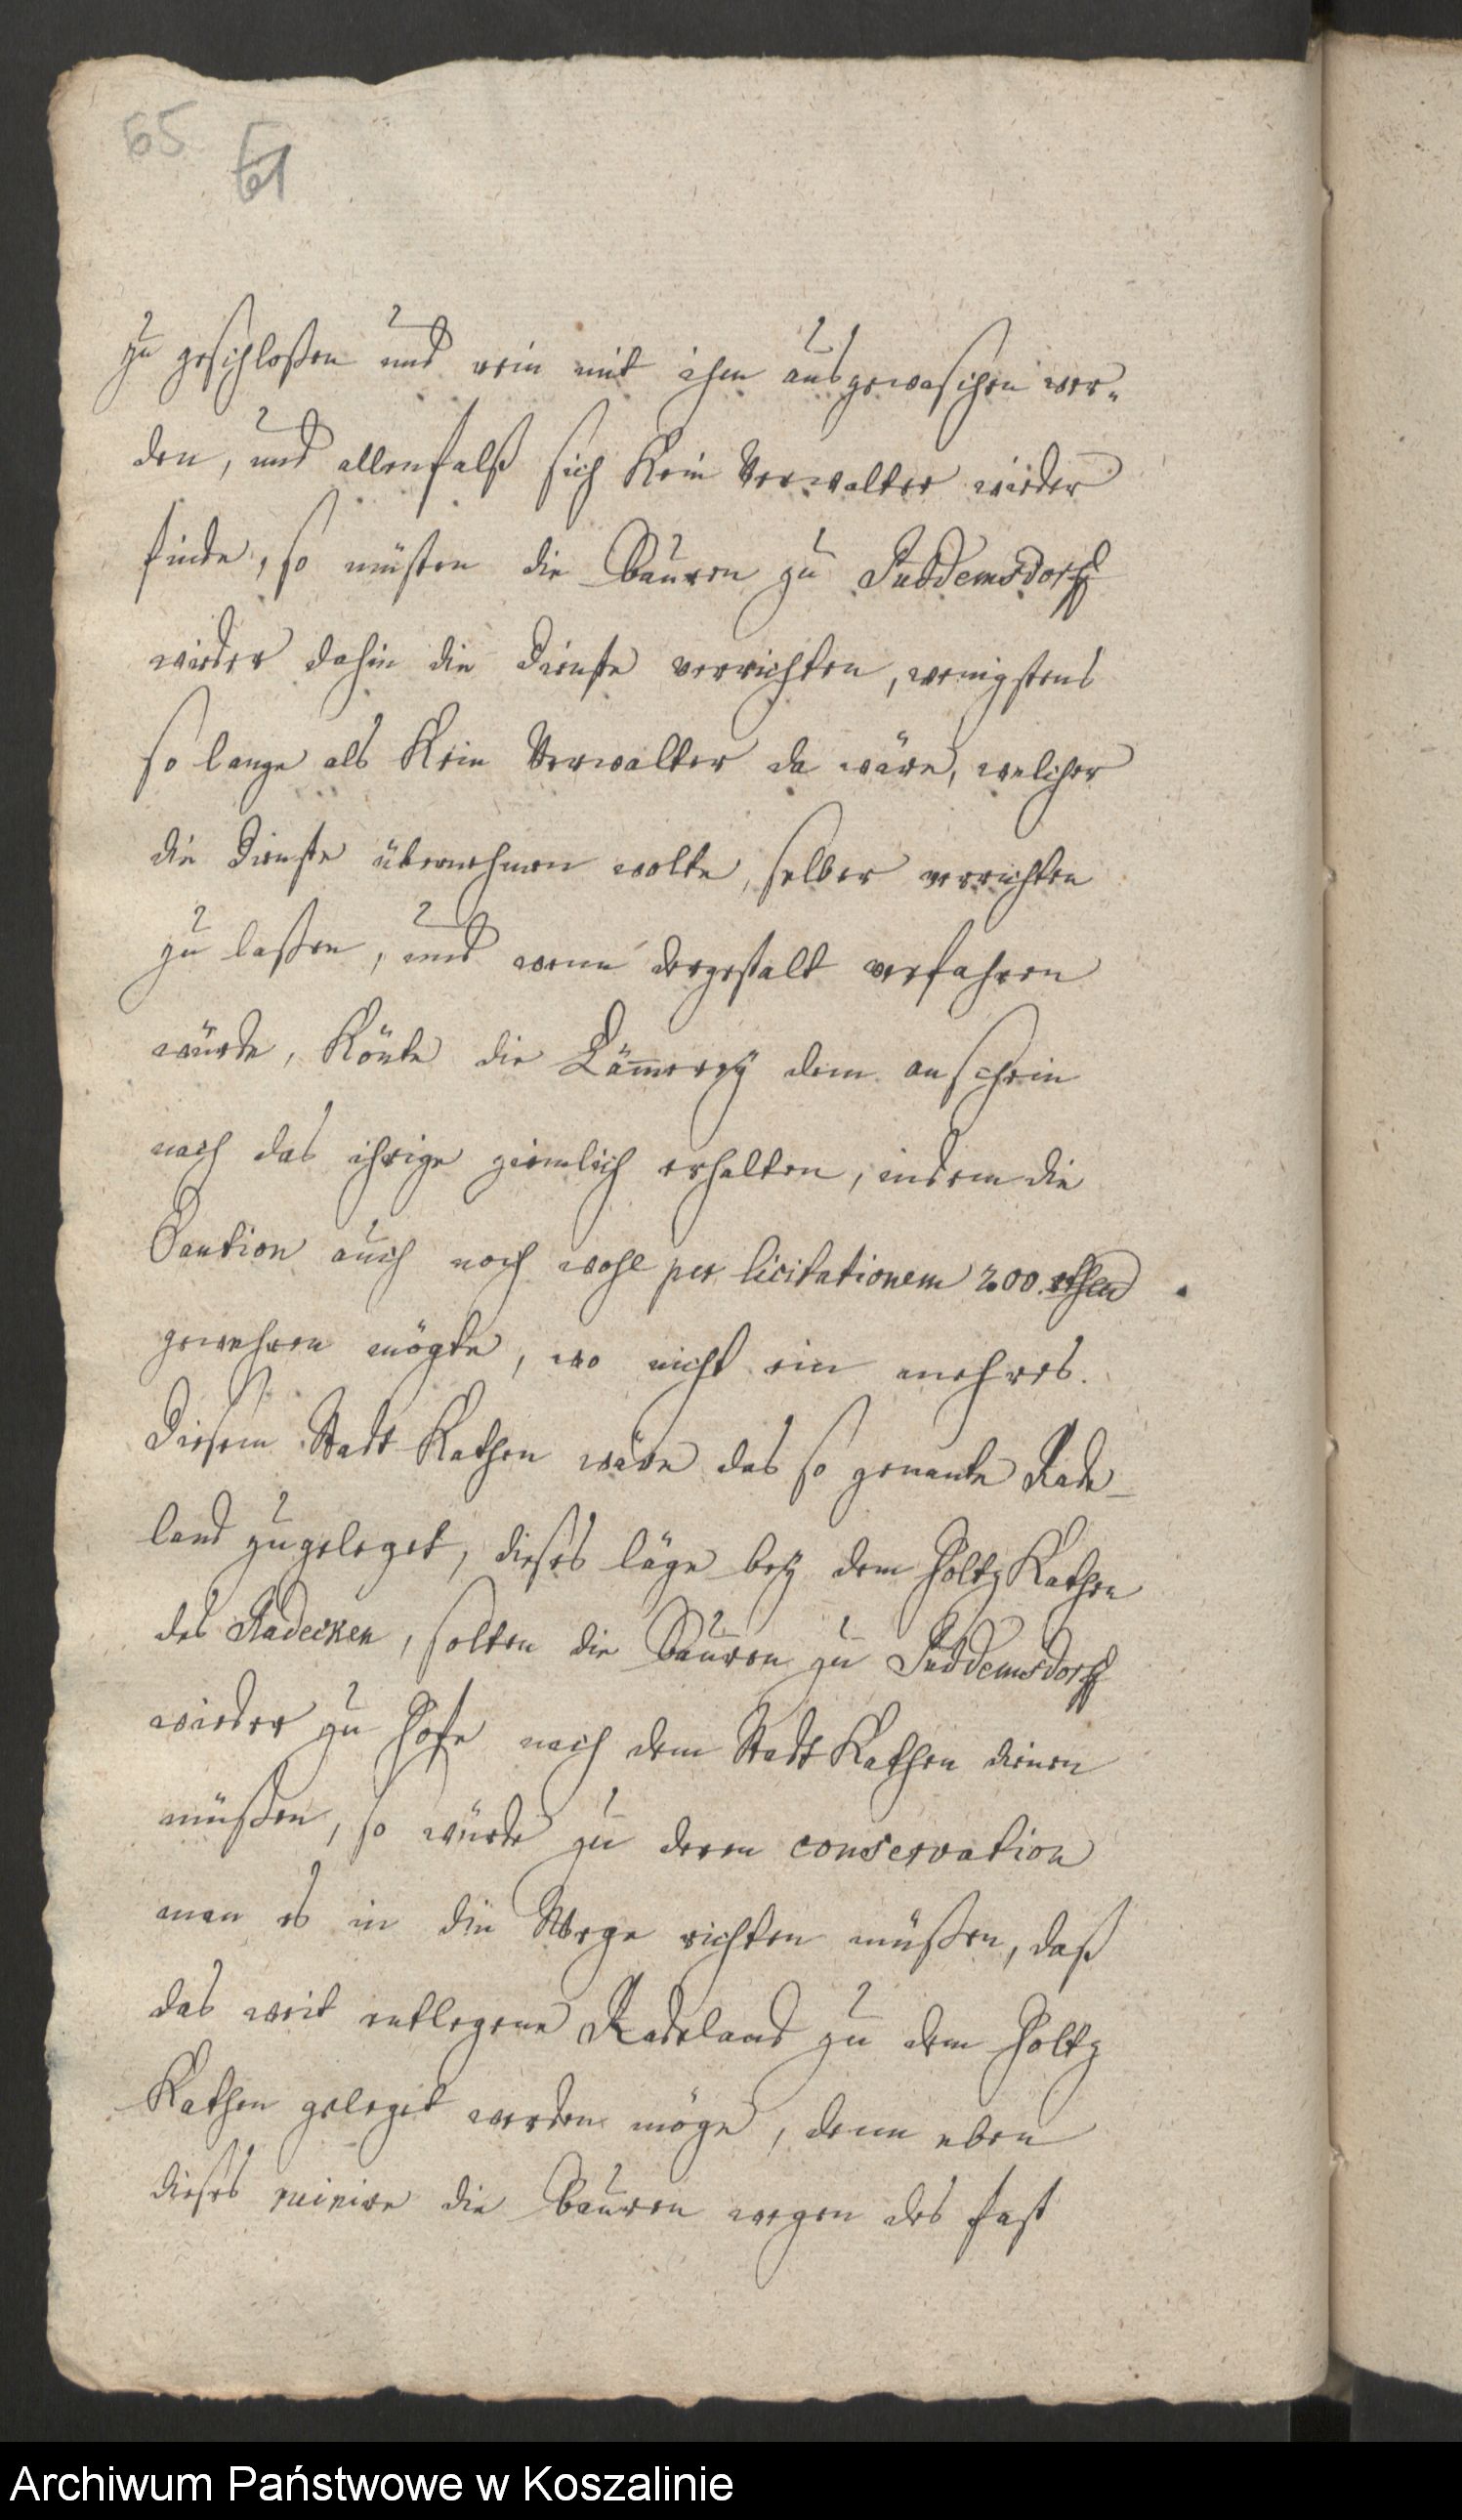 65 61
zu geschloßen und rein mit ihm ausgewaschen wer„
den, und allenfalß sich kein Verwalter wieder
finde, so müsten die Bauren zu Puddemsdorff
wieder dahin die Dienste verrichten, wenigstens
so lange als kein Verwalter da wäre, welcher
die Dienste übernehmen wolte, selber verrichten
zu laßen, und wenn dergestalt verfahren
würde, könte die Cämmerey dem anschein
nach das ihrige ziemlich erhalten, indem die
Caution auch noch wohl per licitationem 200. rthlr
gewehren mögte, wo nicht ein mehres.
Diesem Stadt Kathen wäre das so genante Rade-
land zugeleget, dieses läge bey dem Holtz Kathen
des Radecken, solten die Bauren zu Puddemsdorff
wieder zu Hofe nach dem Stadt Kathen dienen
müßen, so würde zu deren conservation
man es in die Wege richten müßen, daß
das weit entlegene Radeland zu dem Holtz
Kathen geleget werden möge, denn eben
dieses ruinire die Bauren wegen des fast
Archiwum Państwowe w Koszalinie